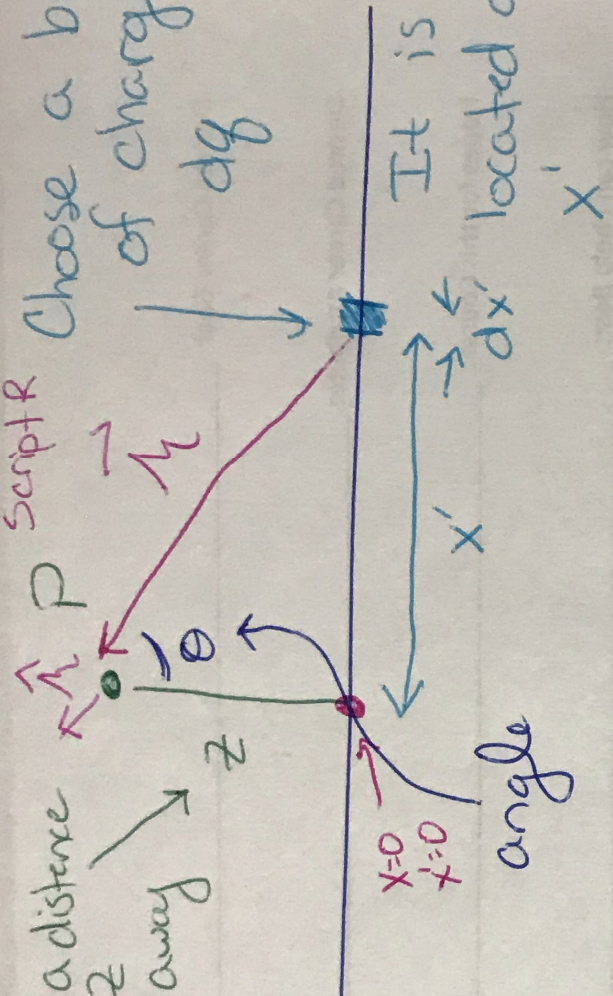 a distance
z
away
z
P
Script R
r̂
r⃗
θ
Choose a b
of charg
dq
x=0
x'=0
angle
x'
dx'
It is
located
x'